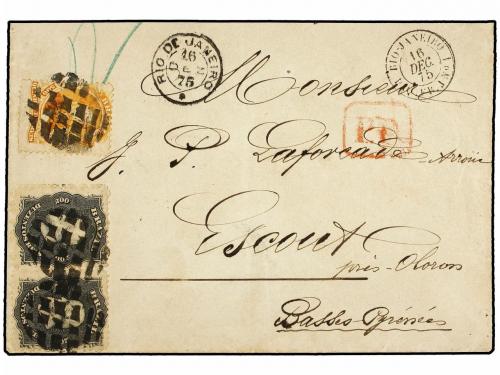 RIO DE JANEIRO
16
DEZ
75
RIO-JANEIRO
16
DEC.
75
Monsieur
PD
J. P. Laforcade
Escout
près Oloron
Basses Pyrénées
200
BRAZIL
DUZENTOS
DUZENTOS